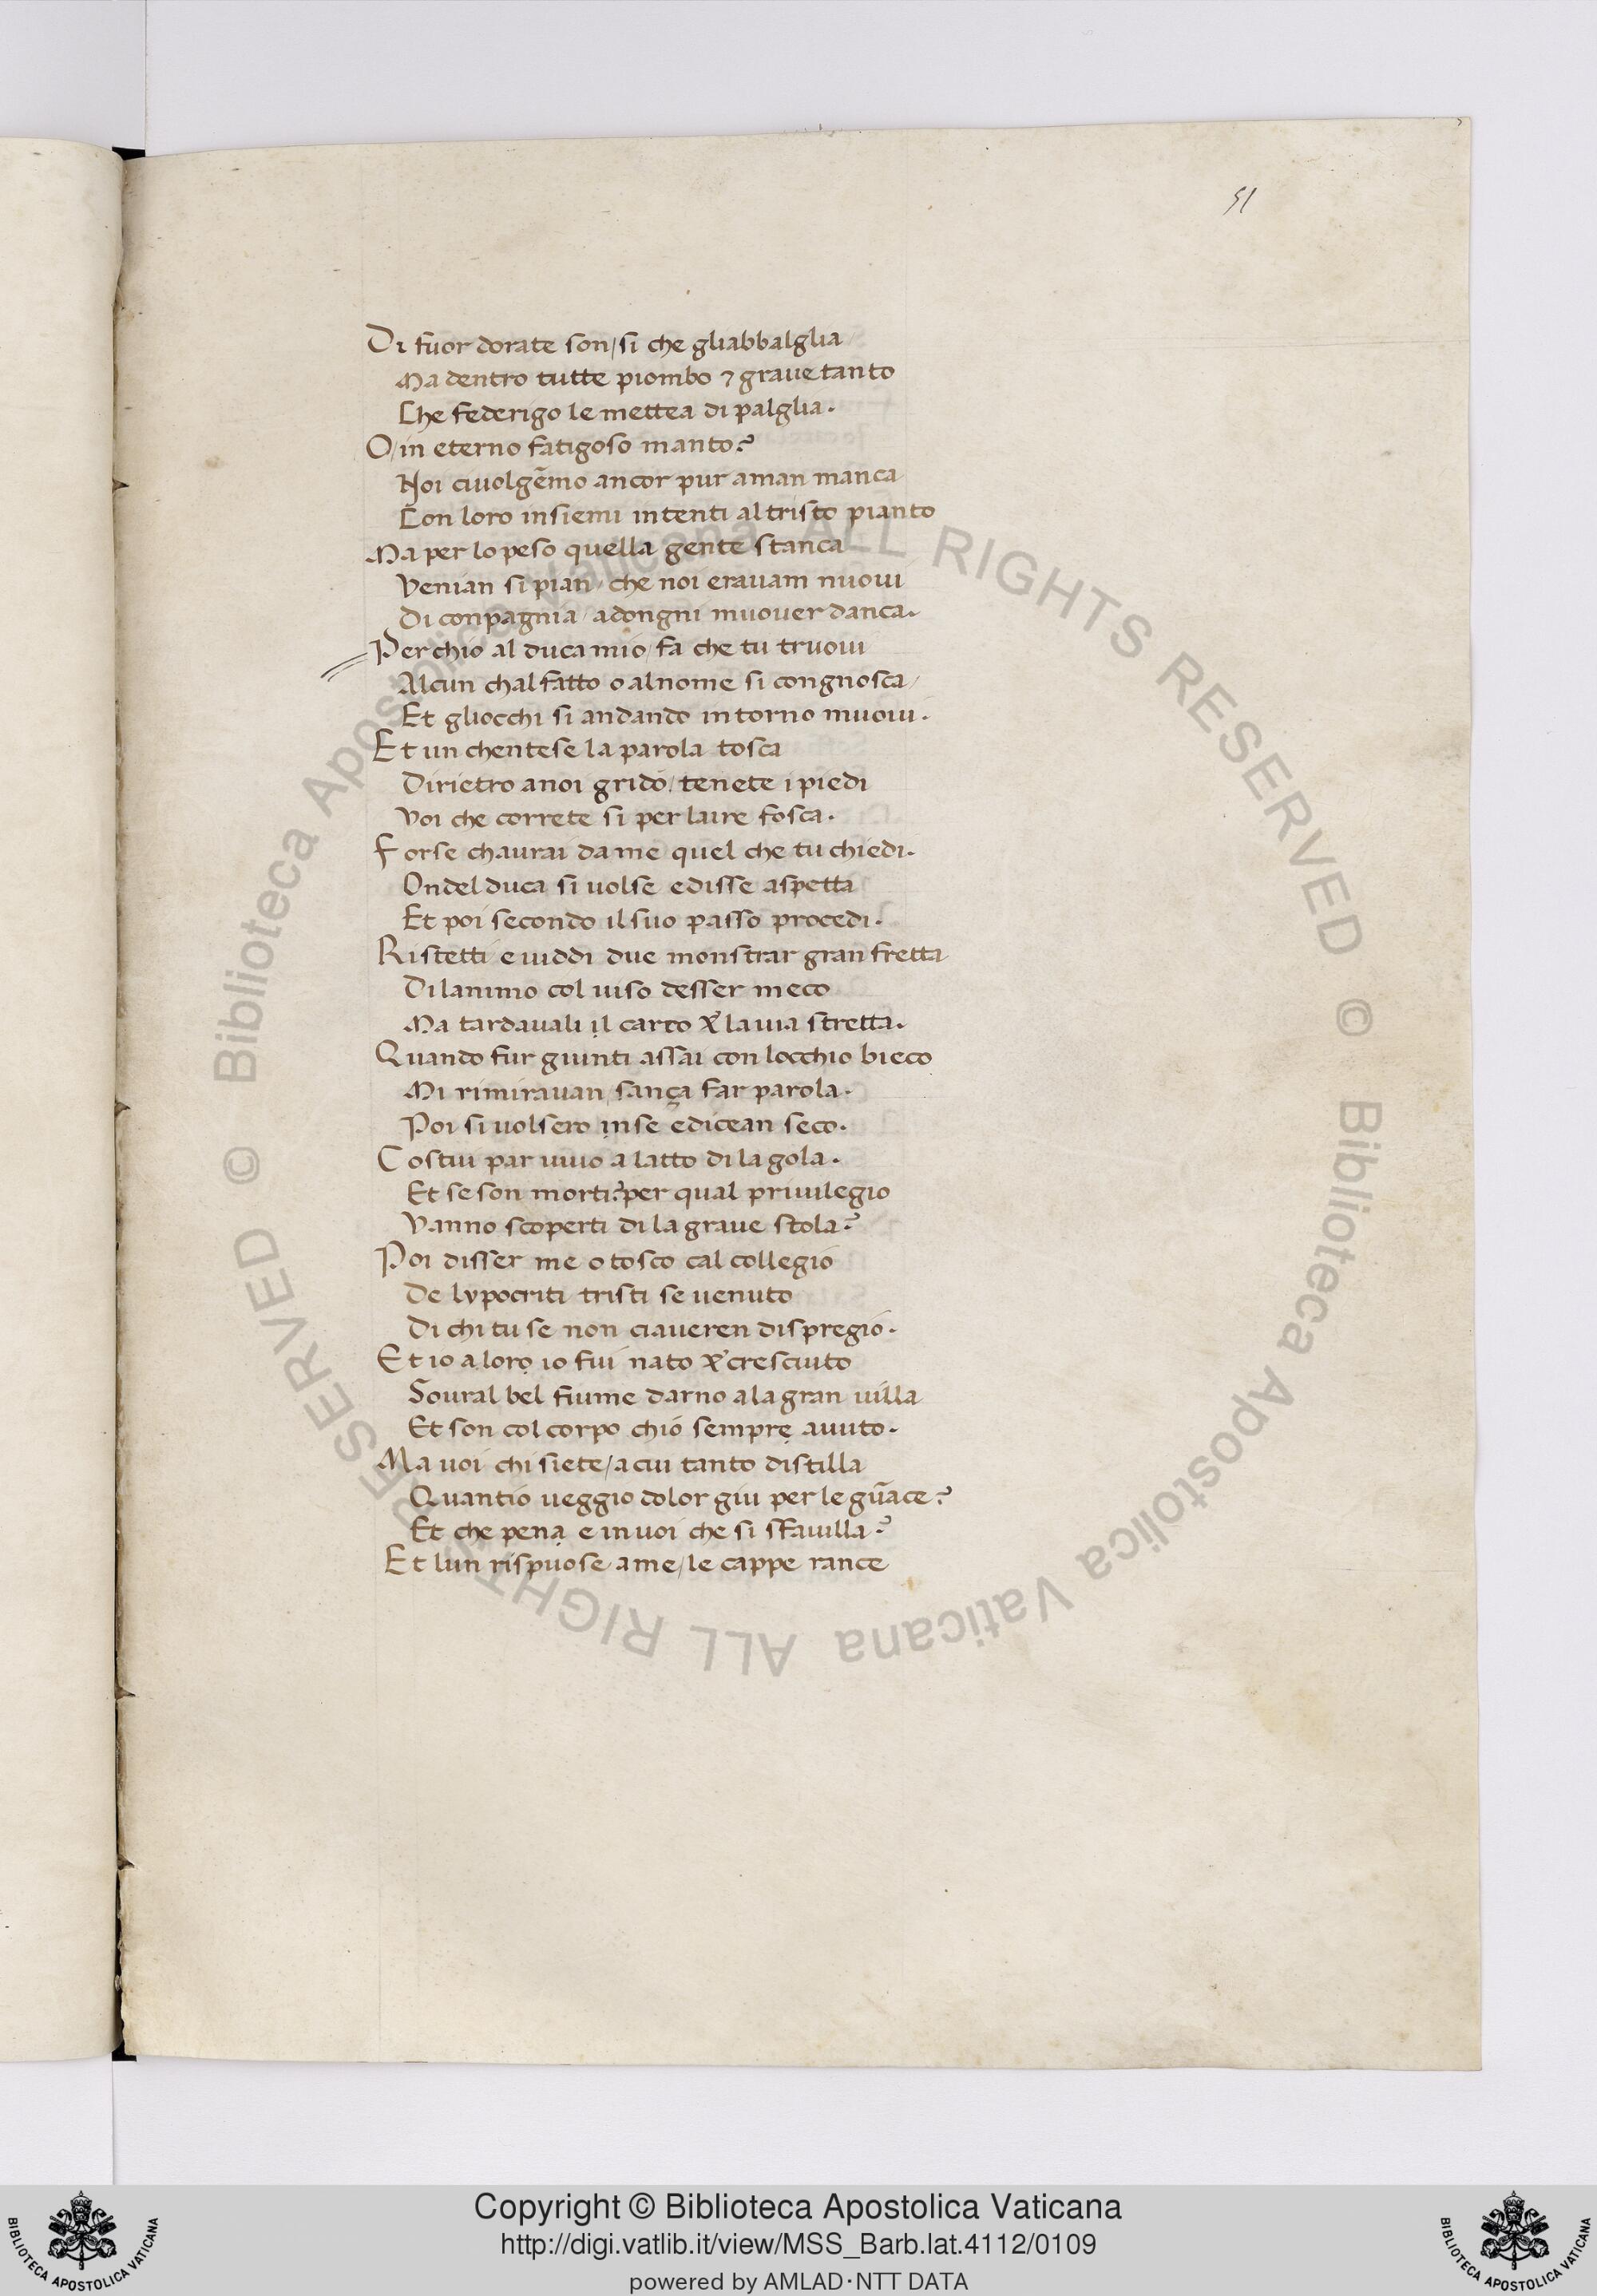 51
Di fuor dorate son/si che gliabbalglia
Ma dentro tutte piombo ⁊ graue tanto
Che federigo le mettea di palglia.
O/in eterno fatigoso manto?
Noi ciuolgēmo ancor pur aman manca
Con loro insiemi intenti al tristo pianto
Ma per lo peso quella gente stanca
Venian si pian/che noi erauam nuoui
Di conpagnia/adongni muouer danca.
Perchio al duca mio/fa che tu truoui
Alcun chal fatto o alnome si congnosca/
Et gliocchi si andando intorno muoui.
Et un chentese la parola tosca
Dirietro anoi gridò/tenete i piedi
Voi che correte si per laire fosca.
Forse chaurai da me quel che tu chiedi.
Ondel duca si uolse edisse aspetta
Et poi secondo il suo passo procedi.
Ristetti e uiddi due monstrar gran fretta
Dilanimo col uiso desser meco
Ma tardauali il carco & lauia stretta.
Quando fur giunti assai con locchio bieco
Mi rimirauan/sança far parola.
Poi si uolsero inse edicean seco.
Costui par uiuo a latto di la gola.
Et se son morti?per qual priuilegio
Vanno scoperti di la graue stola?
Poi disser me o tosco cal collegio
De lypocriti tristi se uenuto
Di chi tu se non ciaueren dispregio.
Et io a loro io fui nato & cresciuto
Soural bel fiume darno ala gran uilla
Et son col corpo chiò sempre auuto.
Ma uoi chi siete/a cui tanto distilla
Quantio ueggio dolor giu per le gūace?
Et che pena e in uoi che si sfauilla?
Et lun rispuose a me/le cappe rance
© Biblioteca Apostolica Vaticana ALL RIGHTS RESERVED © Biblioteca Apostolica Vaticana ALL RIGHTS RESERVED
Copyright © Biblioteca Apostolica Vaticana
http://digi.vatlib.it/view/MSS_Barb.lat.4112/0109
powered by AMLAD·NTT DATA
BIBLIOTECA APOSTOLICA VATICANA
BIBLIOTECA APOSTOLICA VATICANA